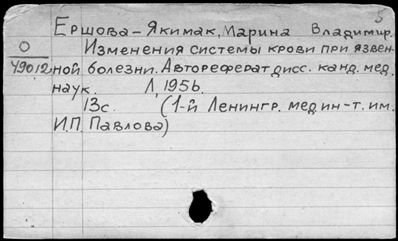 5
Ершова-Якимак, Марина Владимир.
О
49012
Изменения системы крови при язвен-
ной болезни. Автореферат дисс. канд. мед.
наук. Л, 1956.
13с. (1-й Ленингр. мед ин-т. им.
И.П. Павлова)